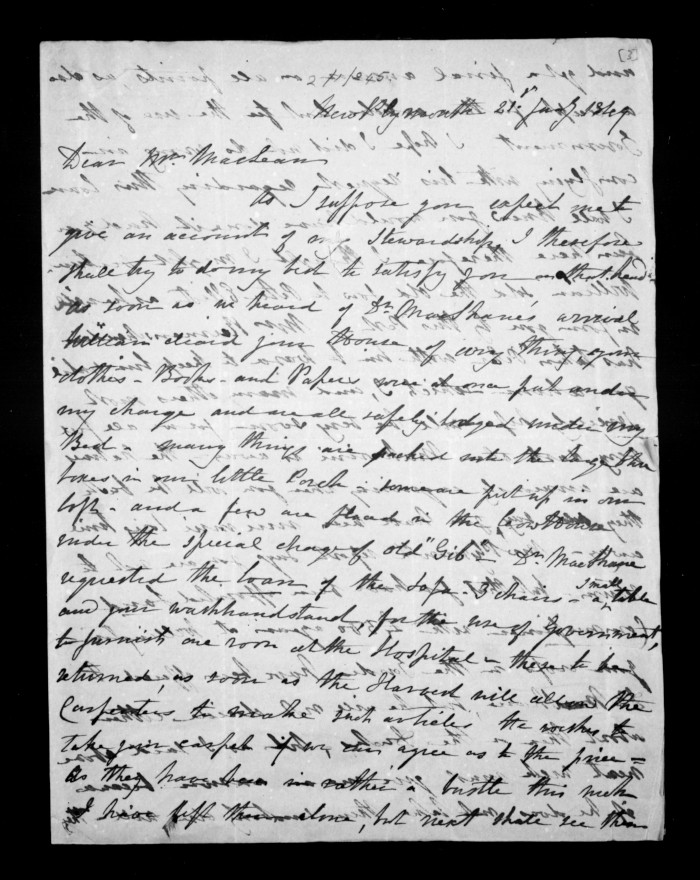 [3]
New Plymouth 21st July 1849
Dear Mrs MacLean
As I suppose you expect me to
give an account of my Stewardship, I therefore
shall try to do my best to satisfy you on that head
as soon as we heard of Dr MacShane's arrival
William cleard your House of every thing, your
clothes - Books - and Papers were at once put under
my charge and are all safely lodged under my
Bed - many things are packed into the large
boxes in our little Porch - some are put up in our
loft - and a few are placed in the Cow House
under the special charge of old "Gib" - Dr MacShane
requested the loan of the Sofa - 3 chairs - a small table
and your washhandstand, for the use of Government,
to furnish one room at the Hospital - these to be
returned, as soon as the Harvest will allow the
Carpenters to make such articles He wishes to
take your carpet if we can agree as to the price -
As they have been in rather a bustle this week
I have left them alone, but next shall see them